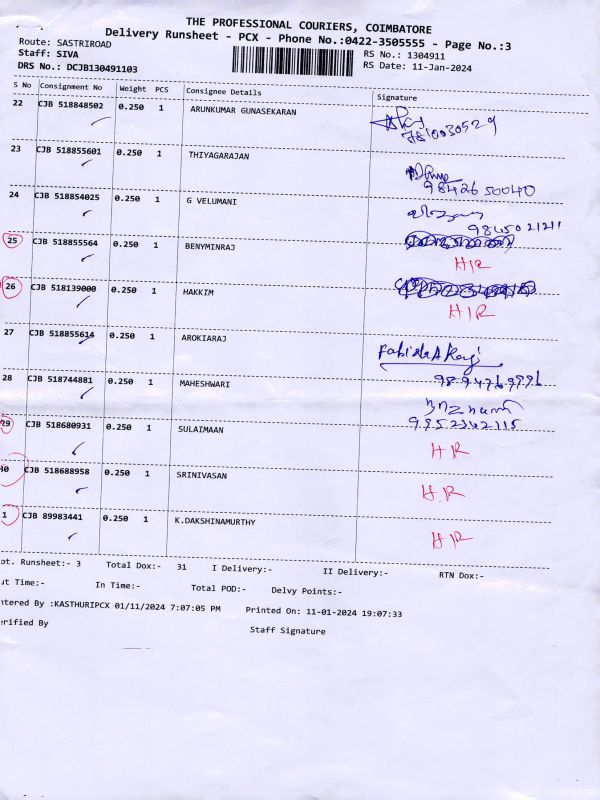 THE PROFESSIONAL COURIERS, COIMBATORE
Delivery Runsheet - PCX - Phone No.:0422-3505555 - Page No.:3
Route: SASTRIROAD
RS No.: 1304911
Staff: SIVA
RS Date: 11-Jan-2024
DRS No.: DCJB130491103
S No Consignment No Weight PCS Consignee Details Signature
22 CJB 518848502 0.250 1 ARUNKUMAR GUNASEKARAN
23 CJB 518855601 0.250 1 THIYAGARAJAN
9842650040
24 CJB 518854025 0.250 1 G VELUMANI
25 CJB 518855564 0.250 1 BENYMINRAJ
HIR
26 CJB 518139000 0.250 1 HAKKIM
HIR
27 CJB 518855614 0.250 1 AROKIARAJ
28 CJB 518744881 0.250 1 MAHESHWARI
29 CJB 518680931 0.250 1 SULAIMAAN
HR
CJB 518688958 0.250 1 SRINIVASAN
HR
1 CJB 89983441 0.250 1 K.DAKSHINAMURTHY
HR
ot. Runsheet:- 3 Total Dox:- 31 I Delivery:- II Delivery:- RTN Dox:-
ut Time:- In Time:- Total POD:- Delvy Points:-
ntered By :KASTHURIPCX 01/11/2024 7:07:05 PM Printed On: 11-01-2024 19:07:33
erified By Staff Signature